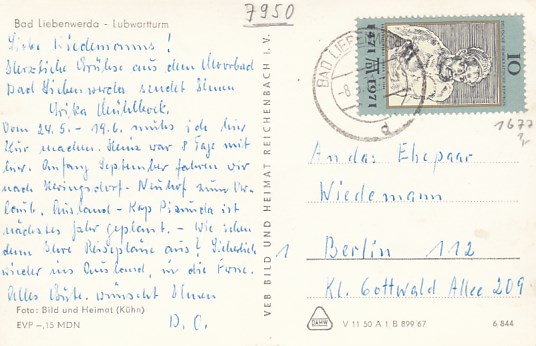 7950
Bad Liebenwerda - Lubwartturm
Liebe Wiedemanns!
Herzliche Grüße aus dem Moorbad
Bad Liebenwerda sendet Ihnen
Erika Mühlbock.
Vom 24.5. - 19.6. muß ich hier
Kur machen. Heinz war 8 Tage mit
hier. Anfang September fahren wir
nach Heringsdorf - Neuhof zum Ur-
laub. Ausland - Kap Pizunda ist
nächstes Jahr geplant. - Wie sehen
denn Ihre Reisepläne aus? Sicherlich
wieder ins Ausland, in die Ferne.
Alles Gute wünscht Ihnen
D. O.
Foto: Bild und Heimat (Kühn)
EVP -,15 MDN
VEB BILD UND HEIMAT REICHENBACH i. V.
1471 1971
10
BAD LIEBEN
1677
An das Ehepaar
Wiedemann
1 Berlin 112
Kl. Gottwald Allee 209
DAMW
V 11 50 A 1, B 899/67
6 844